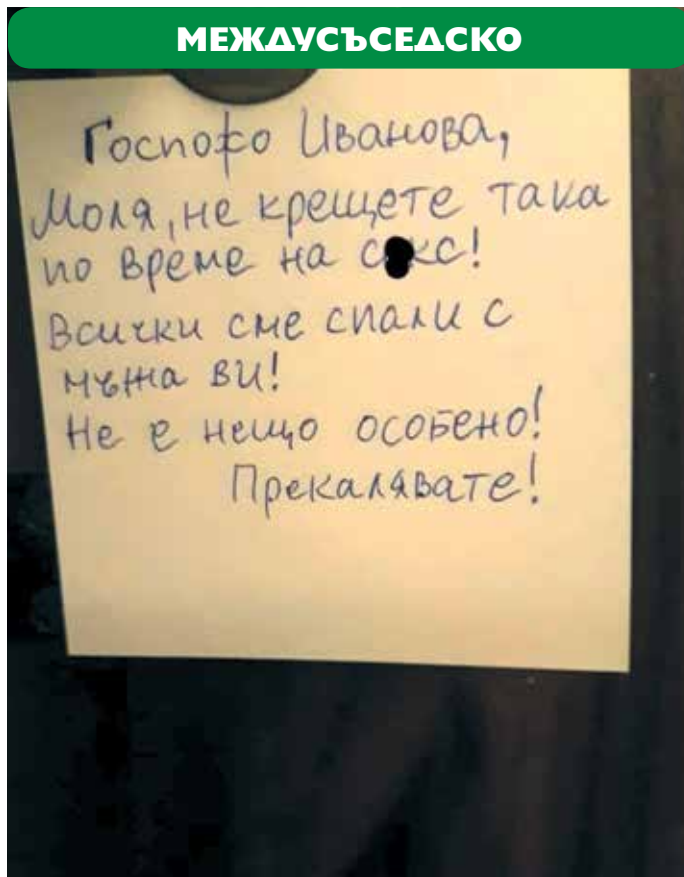 МЕЖДУСЪСЕДСКО
Госпожо Иванова,
Моля, не крещете така
по време на с кс!
Всички сме спали с
мъжа ви!
Не е нещо особено!
Прекалявате!